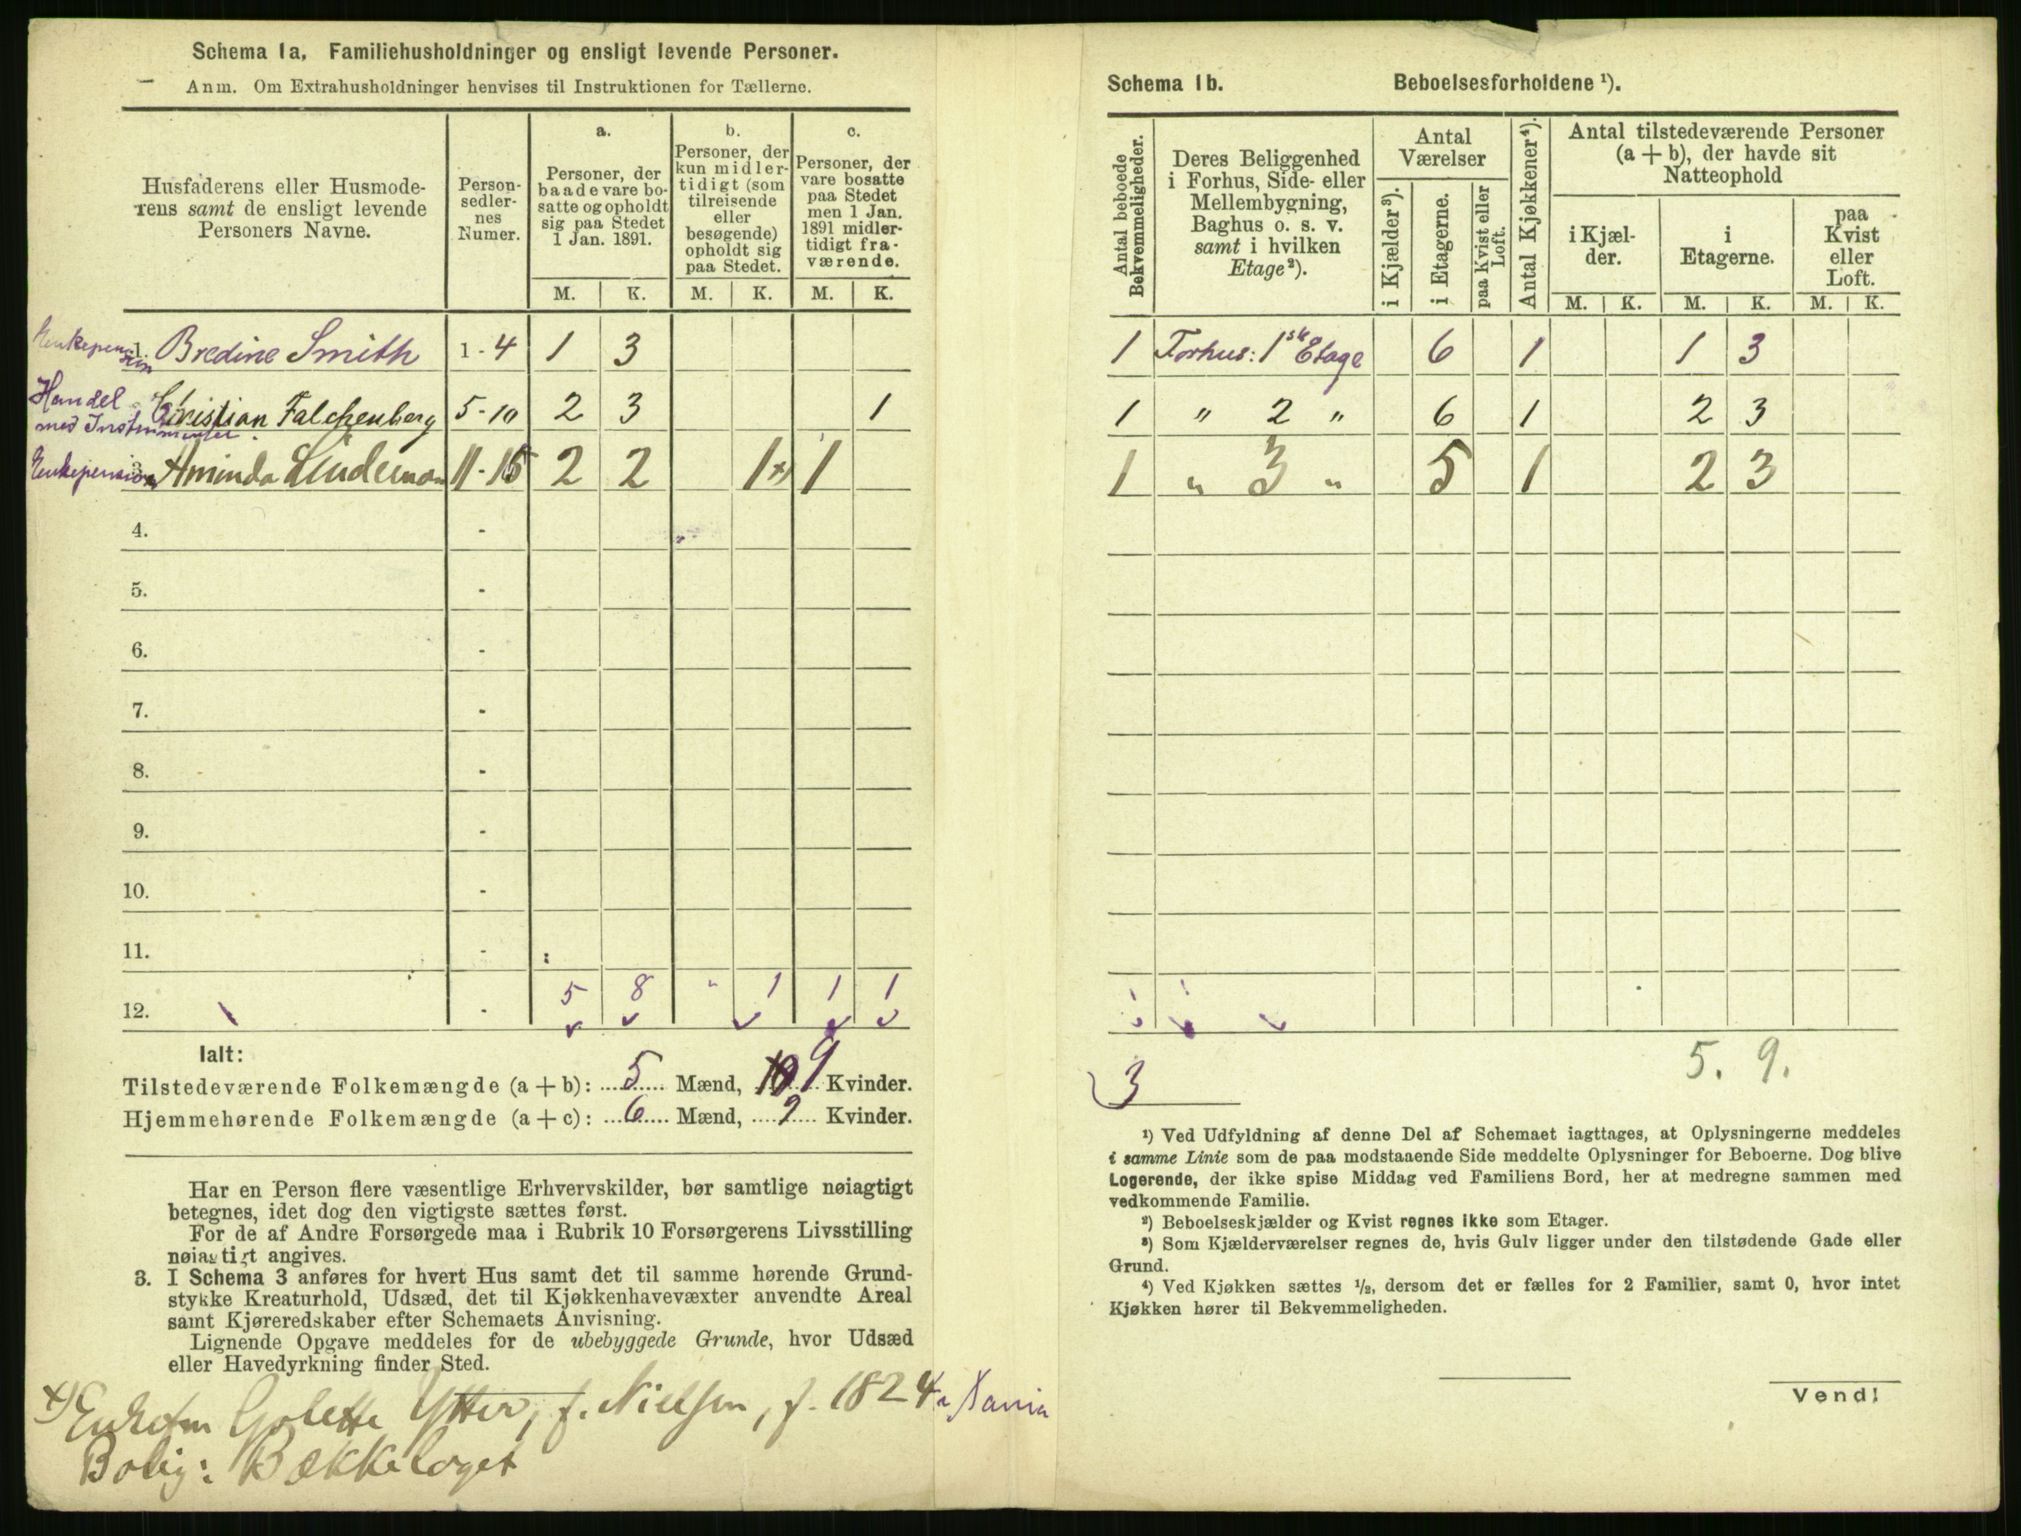 Schema 1a. Familiehusholdninger og ensligt levende Personer.
Anm. Om Extrahusholdninger henvises til Instruktionen for Tællerne.
Husfaderens eller Husmode-
rens samt de ensligt levende
Personers Navne.
Person-
sedler-
nes
Numer.
a.
Personer, der
baade vare bo-
satte og opholdt
sig paa Stedet
1 Jan. 1891.
b.
Personer, der
kun midler-
tidigt (som
tilreisende
eller
besøgende)
opholdt sig
paa Stedet.
c.
Personer, der
vare bosatte
paa Stedet
men 1 Jan.
1891 midler-
tidigt fra-
værende.
M. K. M. K. M. K.
Enkepension 1. Bredine Smith 1 - 4 1 3
Handel med Instrumenter Christian Falckenberg 5 - 10 2 3 1
Enkepension 3. Aminda Lindeman 11 - 15 2 2 1 x) 1
4. -
5. -
6. -
7. -
8. -
9. -
10. -
11. -
12. - 5 8 " 1 1 1
Ialt:
Tilstedeværende Folkemængde (a + b): 5 Mænd, 9 Kvinder.
Hjemmehørende Folkemængde (a + c): 6 Mænd, 9 Kvinder.
Har en Person flere væsentlige Erhvervskilder, bør samtlige nøiagtigt
betegnes, idet dog den vigtigste sættes først.
For de af Andre Forsørgede maa i Rubrik 10 Forsørgerens Livsstilling
nøiagtigt angives.
3. I Schema 3 anføres for hvert Hus samt det til samme hørende Grund-
stykke Kreaturhold, Udsæd, det til Kjøkkenhavevæxter anvendte Areal
samt Kjøreredskaber efter Schemaets Anvisning.
Lignende Opgave meddeles for de ubebyggede Grunde, hvor Udsæd
eller Havedyrkning finder Sted.
x) Golette Ytter, f. Nielsen, f. 1824
Bolig: Bækkelaget
Schema 1b. Beboelsesforholdene ¹).
Antal beboede
Bekvemmeligheder.
Deres Beliggenhed
i Forhus, Side- eller
Mellembygning,
Baghus o. s. v.
samt i hvilken
Etage²).
Antal
Værelser
i Kjælder³).
i Etagerne.
paa Kvist eller
Loft.
Antal Kjøkkener⁴).
Antal tilstedeværende Personer
(a + b), der havde sit
Natteophold
i Kjæl-
der.
i
Etagerne.
paa
Kvist
eller
Loft.
M. K. M. K. M. K.
1 Forhus: 1ste Etage 6 1 1 3
1 " 2 " 6 1 2 3
1 " 3 " 5 1 2 3
3 5. 9.
¹) Ved Udfyldning af denne Del af Schemaet iagttages, at Oplysningerne meddeles
i samme Linie som de paa modstaaende Side meddelte Oplysninger for Beboerne. Dog blive
Logerende, der ikke spise Middag ved Familiens Bord, her at medregne sammen med
vedkommende Familie.
²) Beboelseskjælder og Kvist regnes ikke som Etager.
³) Som Kjælderværelser regnes de, hvis Gulv ligger under den tilstødende Gade eller
Grund.
⁴) Ved Kjøkken sættes ½, dersom det er fælles for 2 Familier, samt 0, hvor intet
Kjøkken hører til Bekvemmeligheden.
Vend!